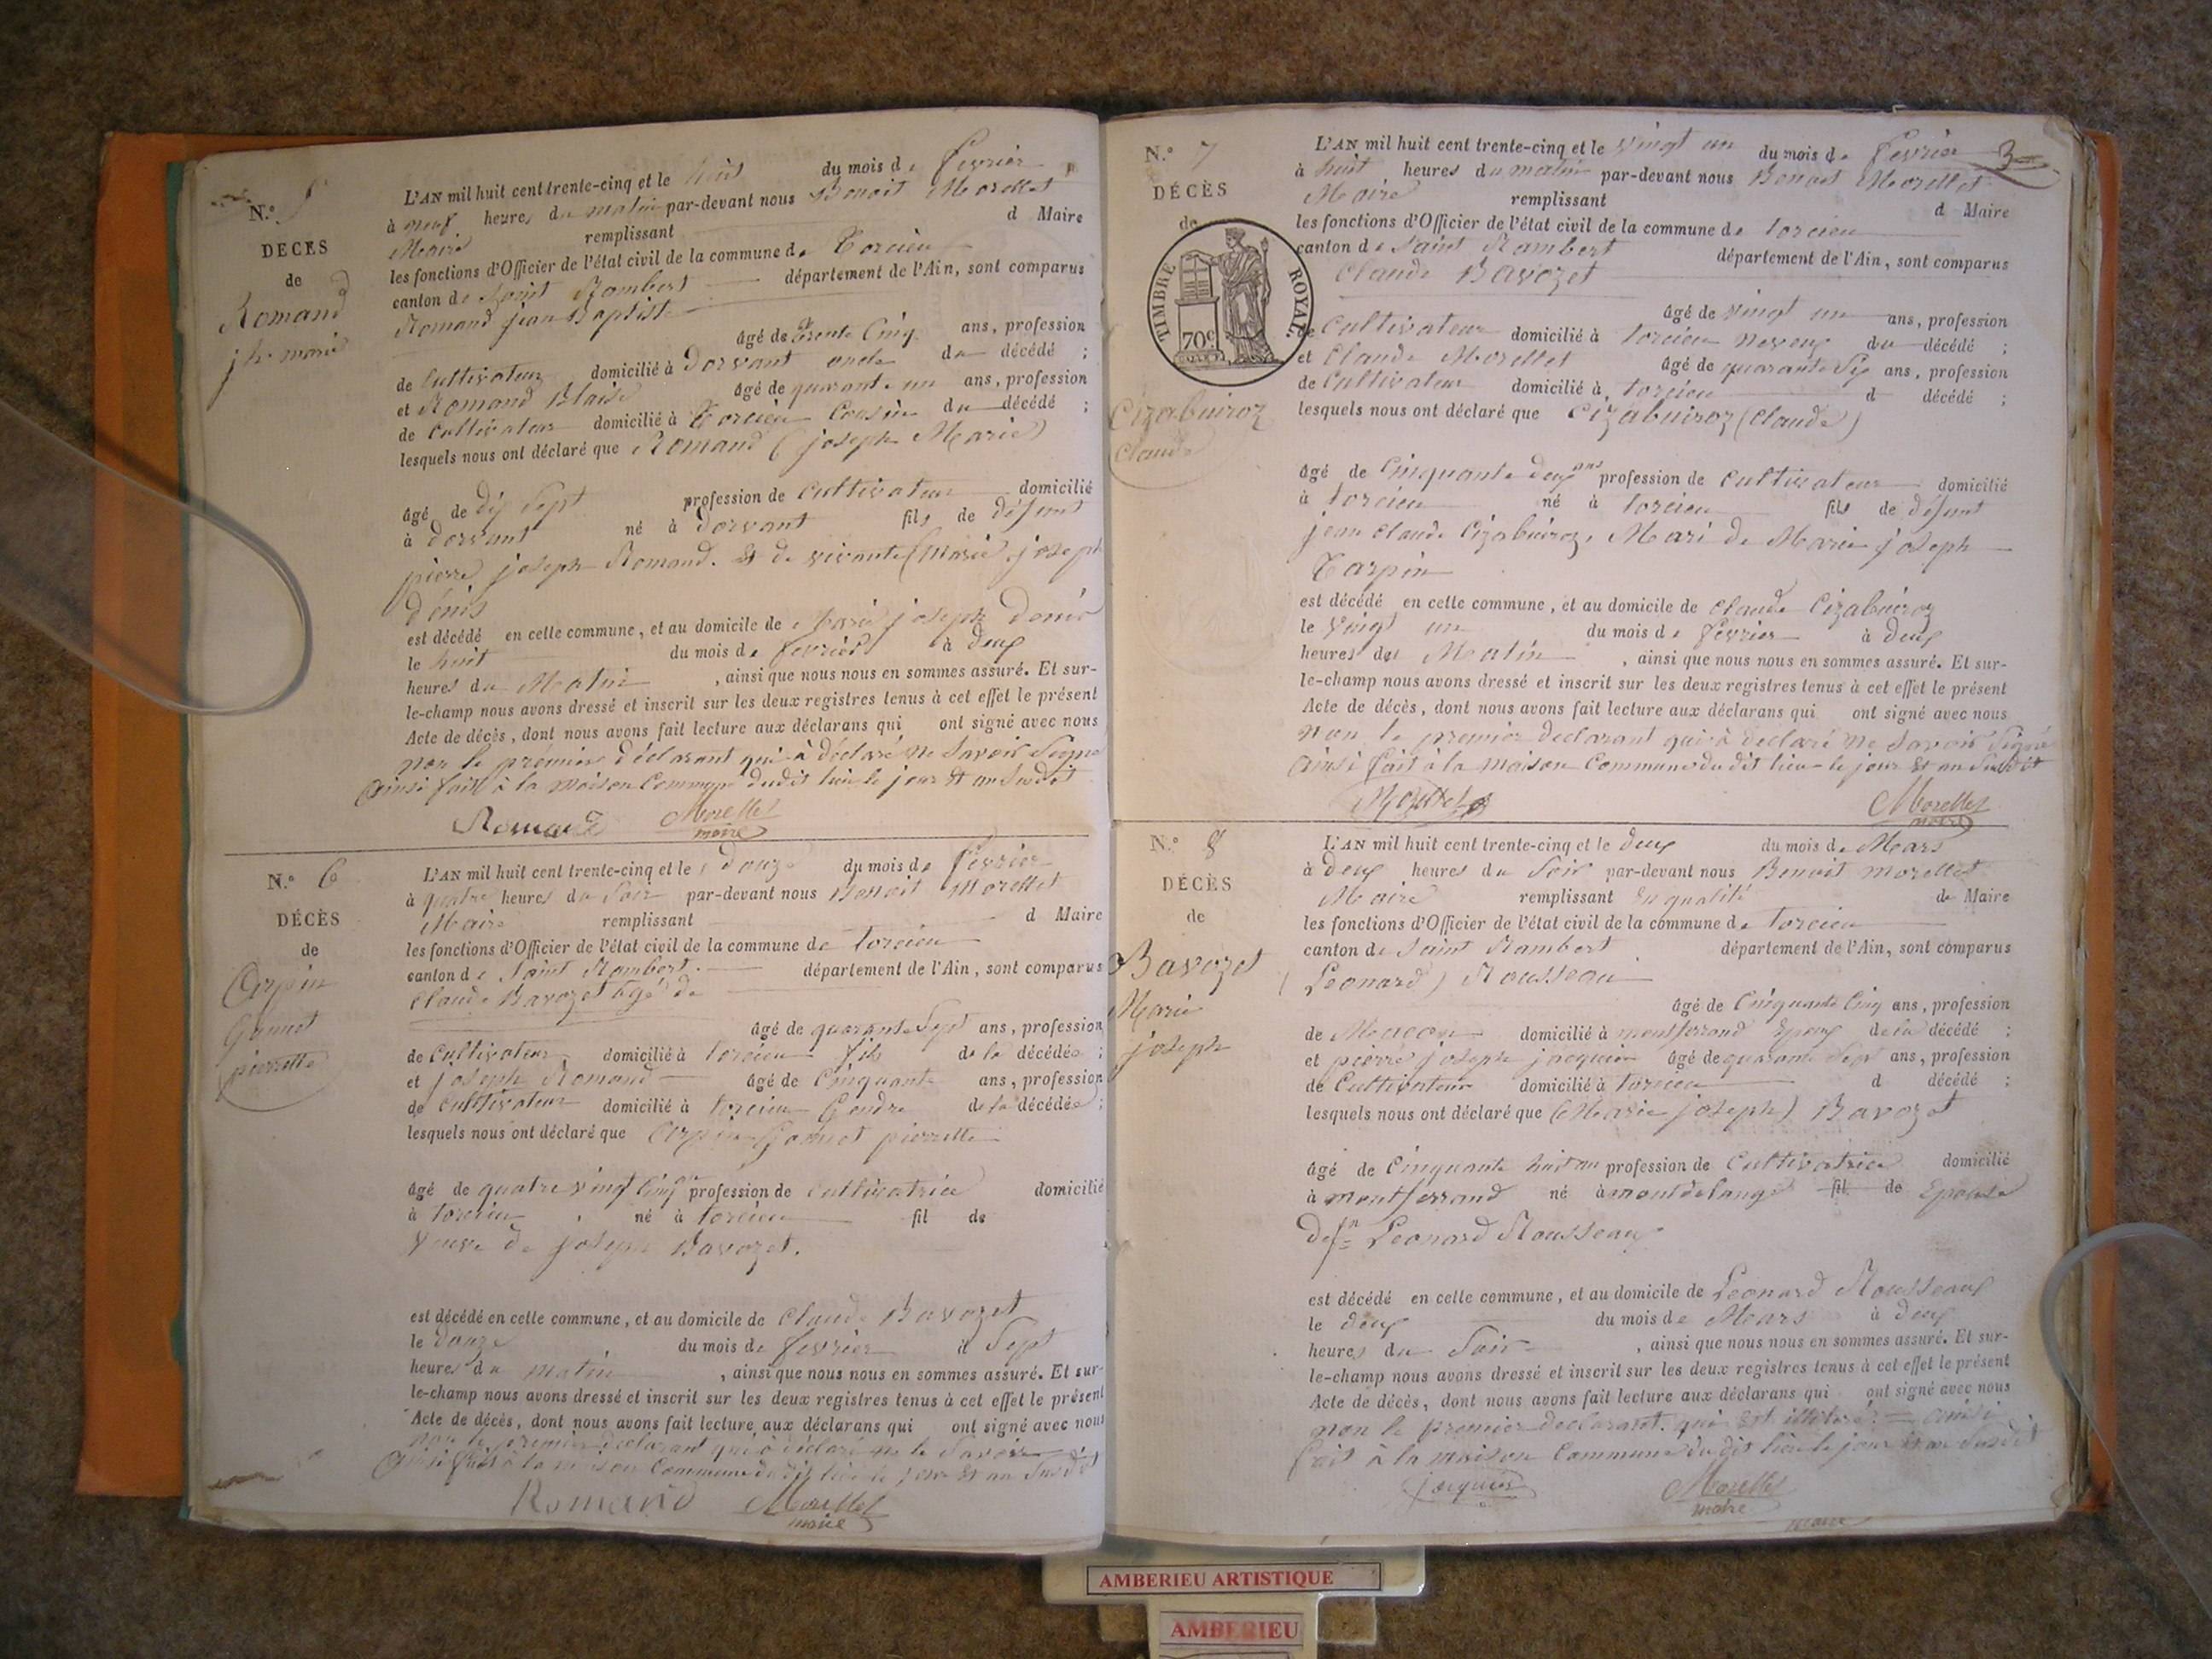 N.º 5
DÉCÈS
de
Romand
jh marie
L'AN mil huit cent trente-cinq et le huit du mois de fevrier
à neuf heures du matin par-devant nous Benoit Morellet
Maire remplissant d Maire
les fonctions d'Officier de l'état civil de la commune de Torcieu
canton de Saint Rambert département de l'Ain, sont comparus
Romand jean Baptiste
âgé de trente Cinq ans, profession
de Cultivateur domicilié à Dorvant oncle du décédé ;
et Romand Blaise âgé de quarante un ans, profession
de Cultivateur domicilié à Torcieu Cousin du décédé ;
lesquels nous ont déclaré que Romand (joseph Marie)
âgé de dix Sept profession de Cultivateur domicilié
à Dorvant né à Dorvant fils de défunt
pierre joseph Romand. et de vivante (Marie joseph
dénis
est décédé en cette commune, et au domicile de Marie joseph Denis
le huit du mois de fevrier à deux
heures du Matin , ainsi que nous nous en sommes assuré. Et sur-
le-champ nous avons dressé et inscrit sur les deux registres tenus à cet effet le présent
Acte de décès, dont nous avons fait lecture aux déclarans qui ont signé avec nous
non le premier déclarant qui à déclaré ne Savoir Signe
Ainsi fait à la Maison Commune dudit lieu le jour et an Susdit
Romand Morellet
maire
N.º 6
DÉCÈS
de
Carpin
Gamet
pierrette
L'AN mil huit cent trente-cinq et le douze du mois de fevrier
à quatre heures du Soir par-devant nous Benoit Morellet
Maire remplissant d Maire
les fonctions d'Officier de l'état civil de la commune de torcieu
canton de Saint Rambert département de l'Ain, sont comparus
Claude Bavozet âgé de
âgé de quarante Sept ans, profession
de Cultivateur domicilié à torcieu fils de la décédée ;
et joseph Romand âgé de Cinquante ans, profession
de Cultivateur domicilié à torcieu Gendre de la décédée ;
lesquels nous ont déclaré que pierrette
âgé de quatre vingt Cinq profession de Cultivatrice domicilié
à torcieu né à torcieu fil de
Veuve de joseph Bavozet.
est décédé en cette commune, et au domicile de Claude Bavozet
le douze du mois de fevrier à Sept
heures du matin , ainsi que nous nous en sommes assuré. Et sur-
le-champ nous avons dressé et inscrit sur les deux registres tenus à cet effet le présent
Acte de décès, dont nous avons fait lecture aux déclarans qui ont signé avec nous
non le premier déclarant qui à déclaré ne le Savoir
Ainsi fait à la maison Commune du dit lieu le jour et an Susdit
Romand Morellet
maire
3
N.º 7
DÉCÈS
de
TIMBRE ROYAL
70c
Cizabuiroz
Claude
L'AN mil huit cent trente-cinq et le vingt un du mois de fevrier
à huit heures du matin par-devant nous Benoit Morellet
Maire remplissant d Maire
les fonctions d'Officier de l'état civil de la commune de torcieu
canton de Saint Rambert département de l'Ain, sont comparus
Claude Bavozet
âgé de vingt un ans, profession
de Cultivateur domicilié à torcieu neveux du décédé ;
et Claude Morellet âgé de quarante Six ans, profession
de Cultivateur domicilié à torcieu d décédé ;
lesquels nous ont déclaré que Cizabuiroz (Claude)
âgé de Cinquante deux ans profession de Cultivateur domicilié
à torcieu né à torcieu fils de défunt
jean Claude Cizabuiroz, Mari de Marie joseph
Tarpin
est décédé en cette commune, et au domicile de Claude Cizabuiroz
le Vingt un du mois de fevrier à deux
heures du Matin , ainsi que nous nous en sommes assuré. Et sur-
le-champ nous avons dressé et inscrit sur les deux registres tenus à cet effet le présent
Acte de décès, dont nous avons fait lecture aux déclarans qui ont signé avec nous
non le premier declarant qui à declaré ne Savoir Signé
Ainsi fait à la Maison Commune du dit lieu le jour et an Susdit
Morellet Morellet
maire
N.º 8
DÉCÈS
de
Bavozet
Marie
joseph
L'AN mil huit cent trente-cinq et le deux du mois de Mars
à deux heures du Soir par-devant nous Benoit Morellet
Maire remplissant En qualité de Maire
les fonctions d'Officier de l'état civil de la commune de torcieu
canton de Saint Rambert département de l'Ain, sont comparus
(Leonard) Rousseau
âgé de Cinquante Cinq ans, profession
de Macon domicilié à montferrand Epoux de la décédé ;
et pierre joseph jacquier âgé de quarante Sept ans, profession
de Cultivateur domicilié à torcieu d décédé ;
lesquels nous ont déclaré que (Marie joseph) Bavozet
âgé de Cinquante huit an profession de Cultivatrice domicilié
à montferrand né à montdelange fil de Epouse
Leonard Rousseaux
est décédé en cette commune, et au domicile de Leonard Rousseaux
le deux du mois de Mars à deux
heures du Soir , ainsi que nous nous en sommes assuré. Et sur-
le-champ nous avons dressé et inscrit sur les deux registres tenus à cet effet le présent
Acte de décès, dont nous avons fait lecture aux déclarans qui ont signé avec nous
non le premier declarant. qui est illétéré. = Ainsi
fait à la maison Commune du dit lieu le jour et an Susdit
jacquier Morellet
maire
maire
AMBERIEU ARTISTIQUE
AMBERIEU